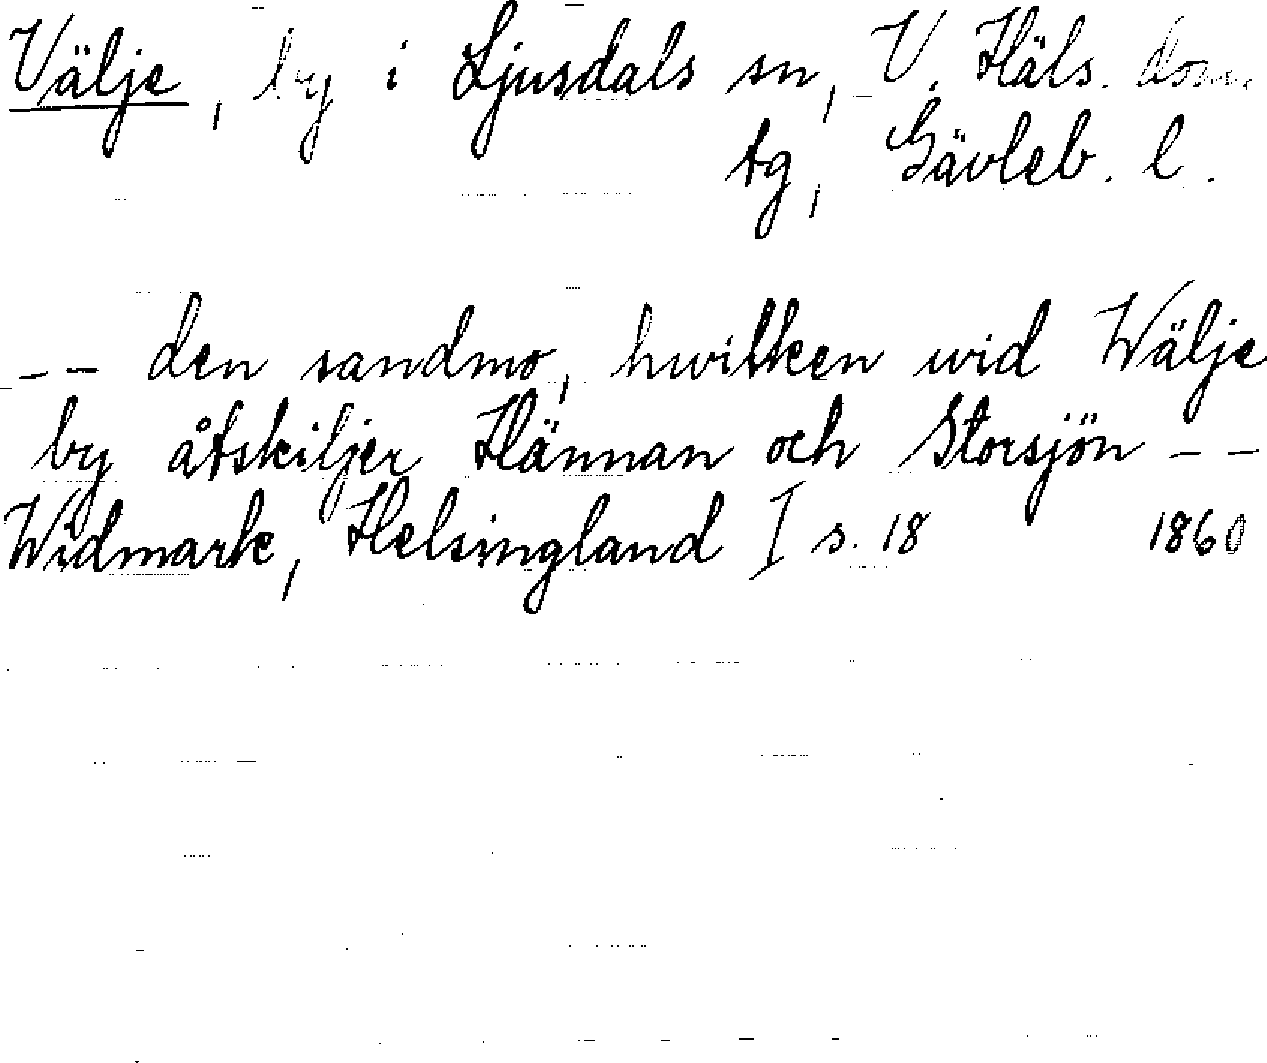 Välje, by i Ljusdals sn, V. Häls. dom.
tg, Gävleb. l.
-- den sandmo, hwilken wid Wälje
by åtskiljer Hännan och Storsjön --
Widmark, Helsingland I s. 18 1860